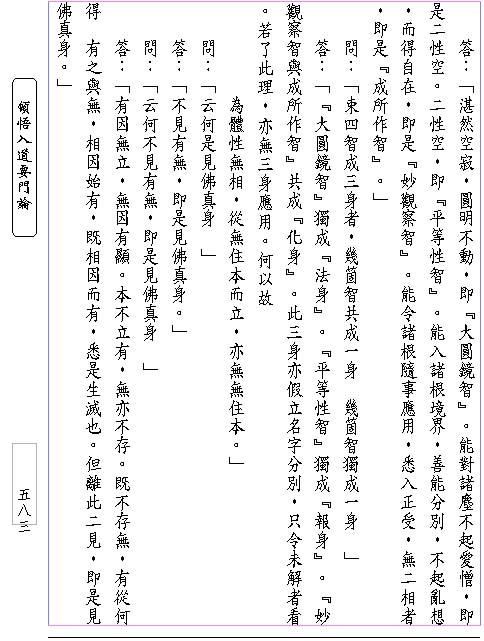 答：「湛然空寂，圓明不動，即『大圓鏡智』。能對諸塵不起愛憎，即
是二性空。二性空，即『平等性智』。能入諸根境界，善能分別，不起亂想
，而得自在，即是『妙觀察智』。能令諸根隨事應用，悉入正受，無二相者
，即是『成所作智』。」
問：「束四智成三身者，幾箇智共成一身　幾箇智獨成一身　」
答：「『大圓鏡智』獨成『法身』。『平等性智』獨成『報身』。『妙
觀察智與成所作智』共成『化身』。此三身亦假立名字分別，只令未解者看
。若了此理，亦無三身應用。何以故
為體性無相，從無住本而立，亦無無住本。」
問：「云何是見佛真身　」
答：「不見有無，即是見佛真身。」
問：「云何不見有無，即是見佛真身　」
答：「有因無立，無因有顯。本不立有，無亦不存。既不存無，有從何
得　有之與無，相因始有，既相因而有，悉是生滅也。但離此二見，即是見
佛真身。」
頓悟入道要門論
五八三